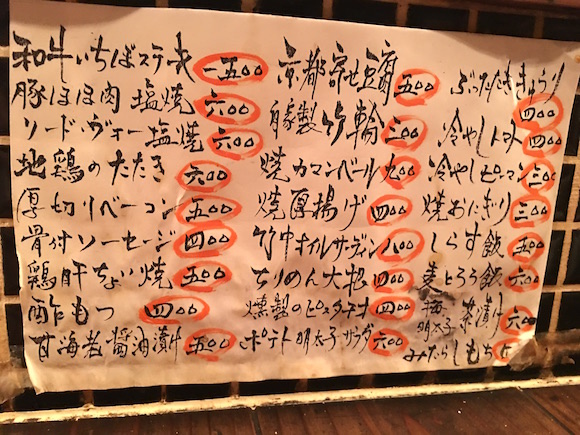 和牛いちばステーキ 一五〇〇
豚ほほ肉 塩焼 六〇〇
ソード・ヴォー塩焼 六〇〇
地鶏のたたき 六〇〇
厚切りベーコン 五〇〇
骨付ソーセージ 四〇〇
鶏肝ちょい焼 五〇〇
酢もつ 四〇〇
甘海老醤油漬け 五〇〇
京都寄せ豆腐 五〇〇
自家製竹輪 三〇〇
焼カマンベール 九〇〇
焼厚揚げ 四〇〇
竹中オイルサーディン 八〇〇
ちりめん大根 四〇〇
燻製のピスタチオ 四〇〇
ポテト明太子サラダ 六〇〇
ぶったたききゅうり 四〇〇
冷やしトマト 四〇〇
冷やしピーマン 三〇〇
焼おにぎり 三〇〇
しらす飯 五〇〇
麦とろろ飯 六〇〇
梅 明太子 茶漬け 六〇〇
みたらしもち